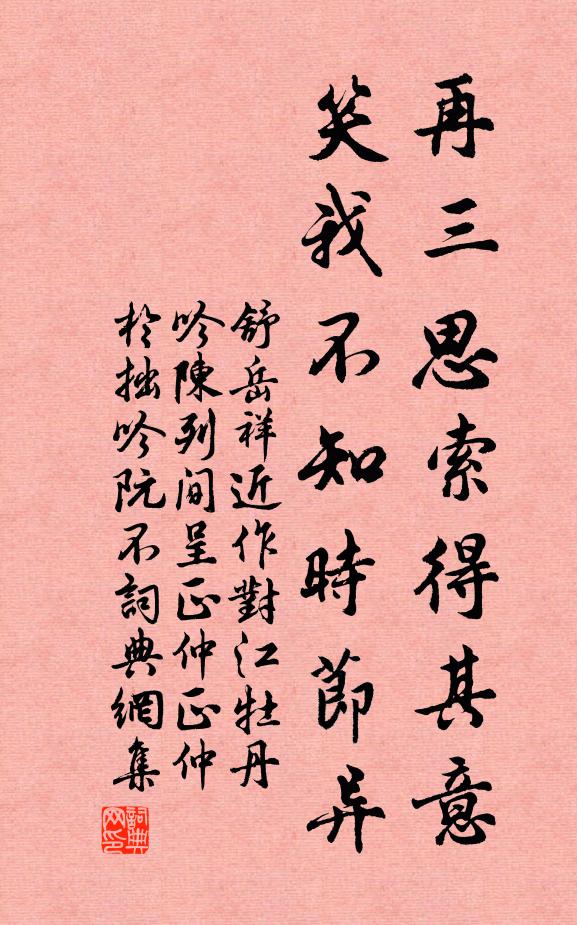 再三思索得其意
笑我不知時節异
舒岳祥近作對江牡丹
吟陳列間呈正仲正仲
於拙吟阮不詞典網集
詞典网印